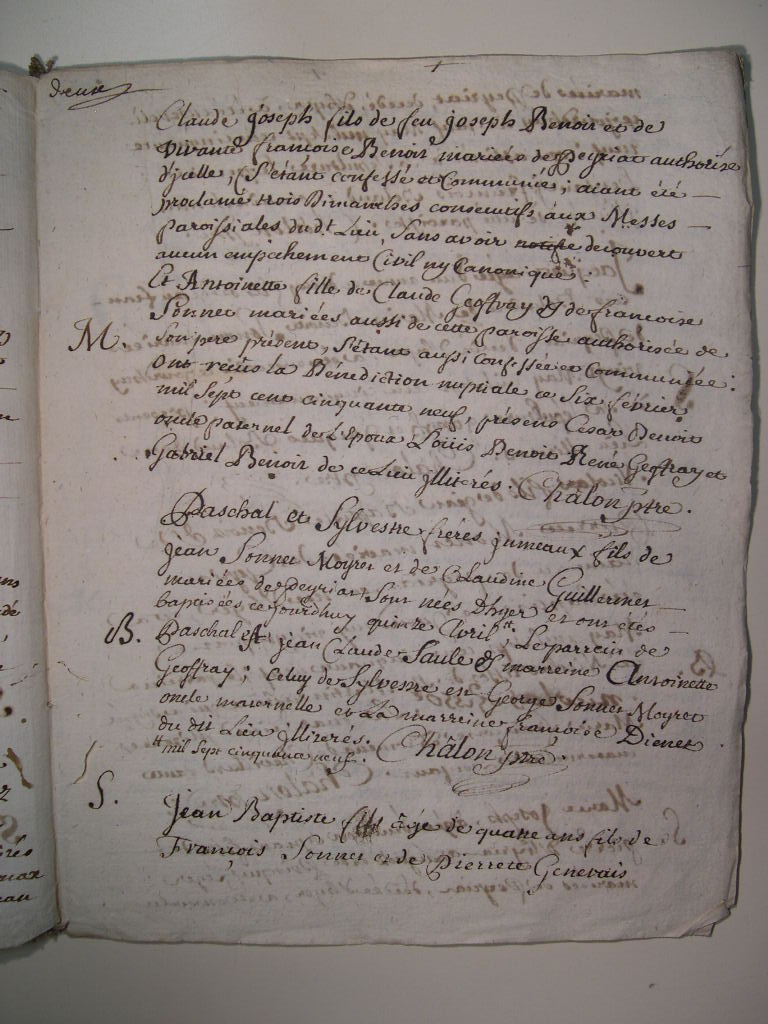 deux
Claude joseph fils de feu joseph Benoit et de
vivante françoise Benoit mariées de peyriat authorisé
d'jcelle ; s'étant confessé et Communié ; aiant été
proclamé trois Dimanches consecutifs aux Messes
Paroissiales du dt Lieu, sans avoir decouvert
aucun empéchement Civil ny Canonique :
Et Antoinette fille de Claude Geoffray & de francoise
Sonnet mariées aussi de cette paroisse authorisée de
M. son pere présent, s'étant aussi Confessée et Communiée :
Ont reçus la Bénédiction nuptiale ce Six février
mil sept cent cinquante neuf, présens Cesar Benoit
oncle paternel de L'Epoux Loüis Benoit René Geoffray et
Gabriel Benoit de ce Lieu jlliterés. Châlon ptre.
Paschal et Sylvestre fréres jumeaux fils de
jean Sonnet Moyret et de Claudine Guillermet
mariées de peyriat, sont nées d'hyer et ont étés
baptisées ce jourdhuy quinze Avril # ; Le parrein de
B. Paschal est jean Claude Saule & marreine Antoinette
Geoffray ; Celuy de Sylvestre est George Sonnet Moyret
oncle maternelle et La marreine francoise Dienet
du dit Lieu jlliterés. Châlon ptre
# mil sept cinquante neuf.
S. Jean Baptiste âgé de quatre ans fils de
François Sonnet et de Pierrete Genevais